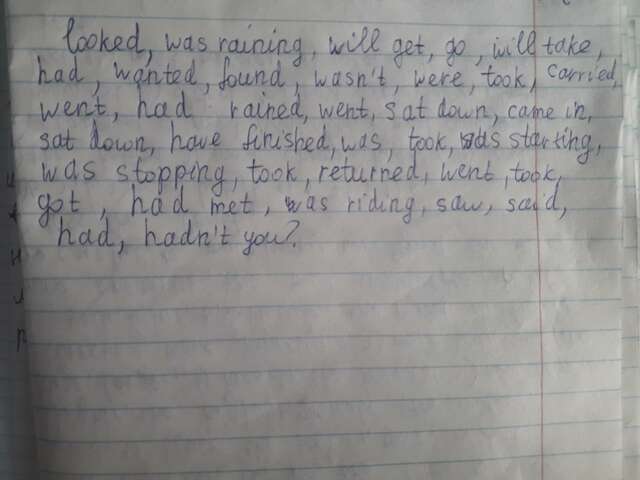 looked, was raining, will get, go, will take,
had, wanted, found, wasn't, were, took, carried,
went, had rained, went, sat down, came in,
sat down, have finished, was, took, was starting,
was stopping, took, returned, went, took,
got, had met, was riding, saw, said,
had, hadn't you?